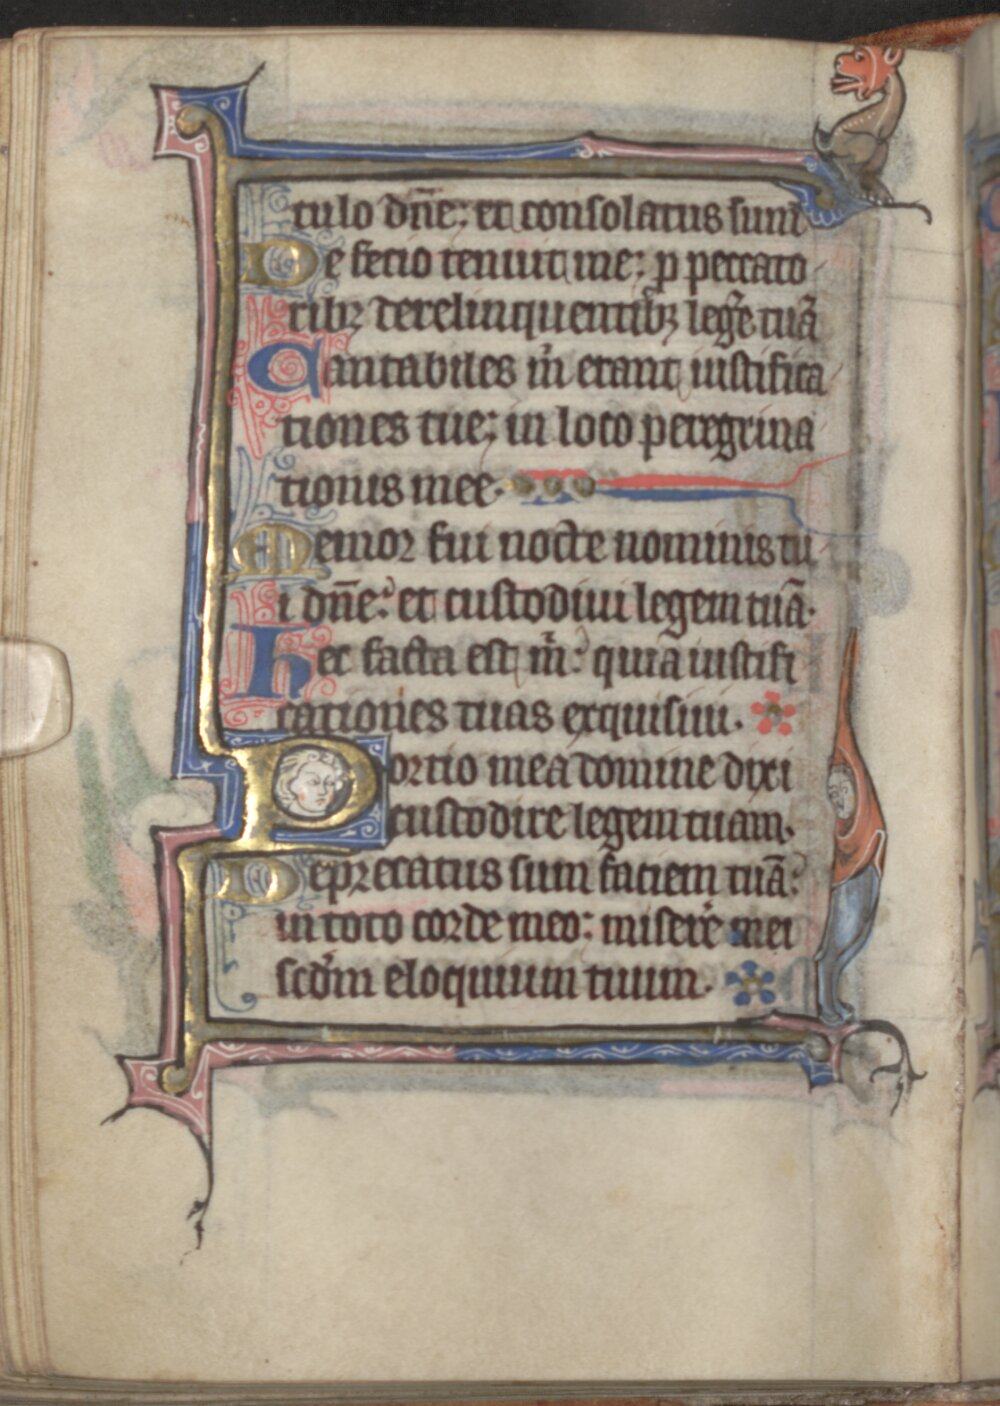 culo dn̄e: et consolatus sum
De fecio tenuit me: p̱ peccato
ribꝫ derelinquentibꝫ legē tuā
Cantabiles m̄ erant iustifica
tiones tue: in loco peregrina
tionis mee.
Memor fui nocte nominis tu
i dn̄e: et custodiui legem tuā.
hec facta est m̄: quia iustifi
cationes tuas exquisiui.
Portio mea domine dixi
custodire legem tuam.
Deprecatus sum faciem tuā:
in toto corde meo: miserē mei
scdm̄ eloquium tuum.